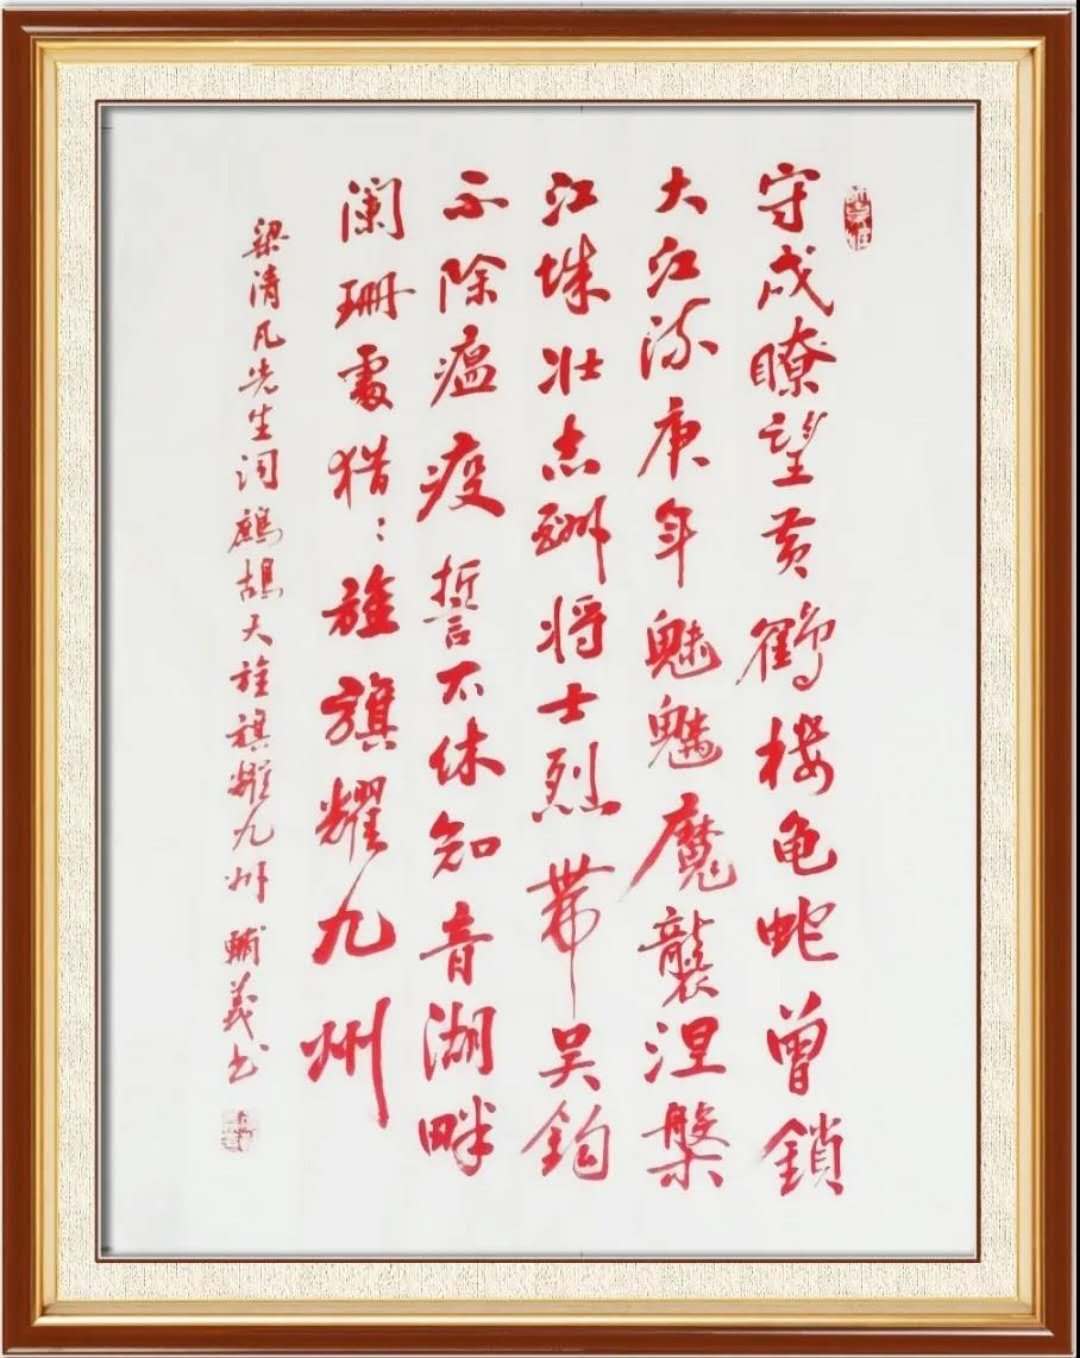 守戍瞭望黄鶴楼龟蛇曾鎖
大江流庚年魅魑魔襲涅槃
江城壮志酬将士烈帶吴鈎
不除瘟疫誓不休知音湖畔
阑珊處猎々旌旗耀九州
梁清凡先生词鹧鸪天旌旗耀九州 輔義书